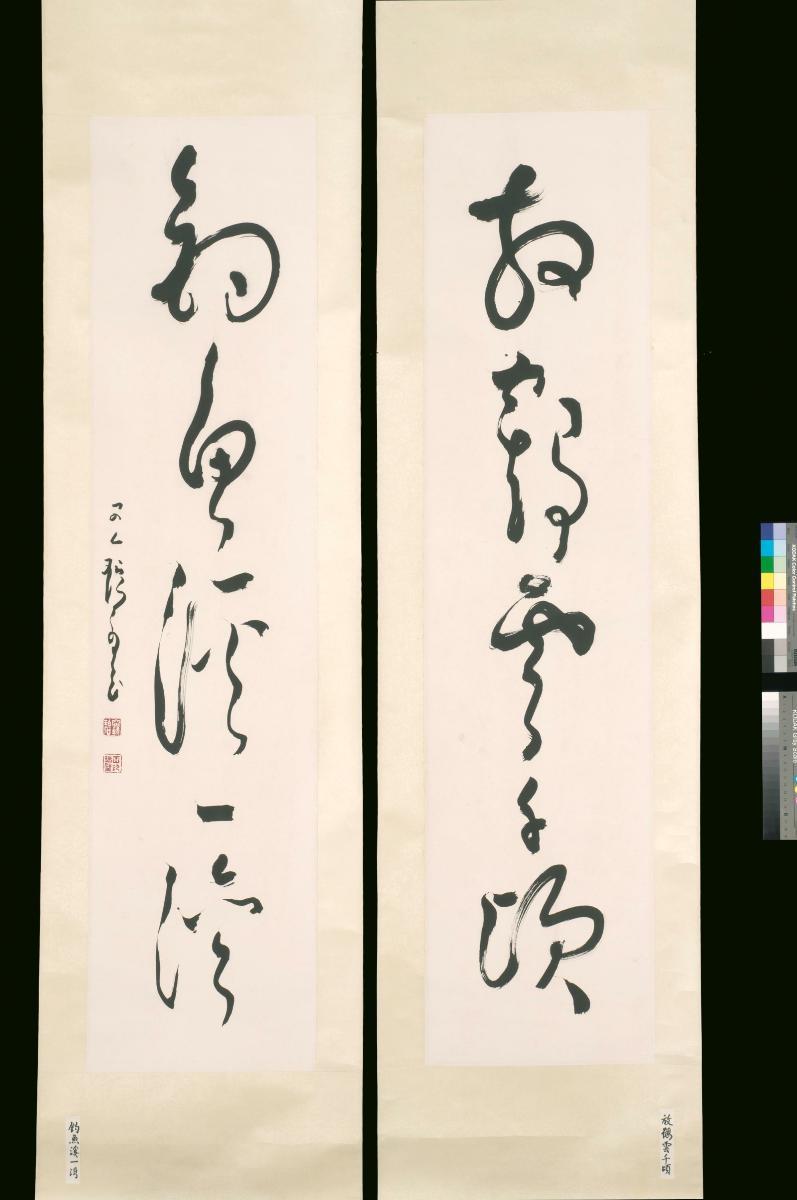 放鶴雲千頃
釣魚溪一灣
放鶴雲千頃
釣魚溪一湾
KODAK Color Control Patches
KODAK Gray Scale